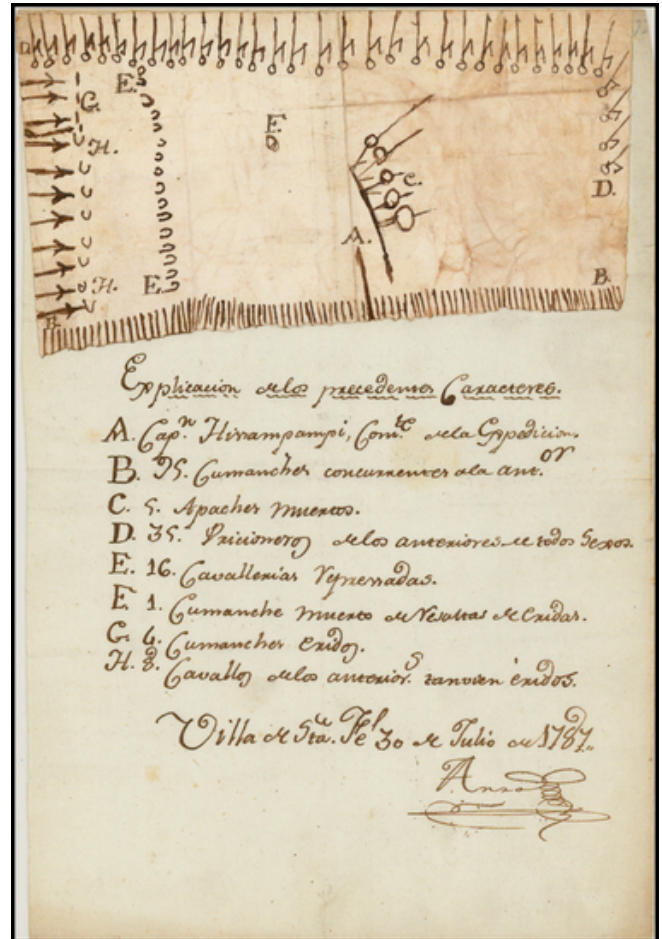 E.
G.
H.
F.
C.
D.
A.
H.
E.
B.
B.
Explicacion de los precedentes Caracteres.
A. Cap.n Hisampampi, Com.te de la Expedicion.
B. 95. Cumanches concurrentes a la ant.or
C. 5. Apaches muertos.
D. 35. Pricioneros de los anteriores de todos Sexos.
E. 16. Cavallerias
F. 1. Cumanche muerto de Resultas de Eridas.
G. Cumanches Eridos.
H. 8. Cavallos de los anterior.s tanvien éridos.
Villa de Sta. Fe 30 de Julio de 1787.
Anza